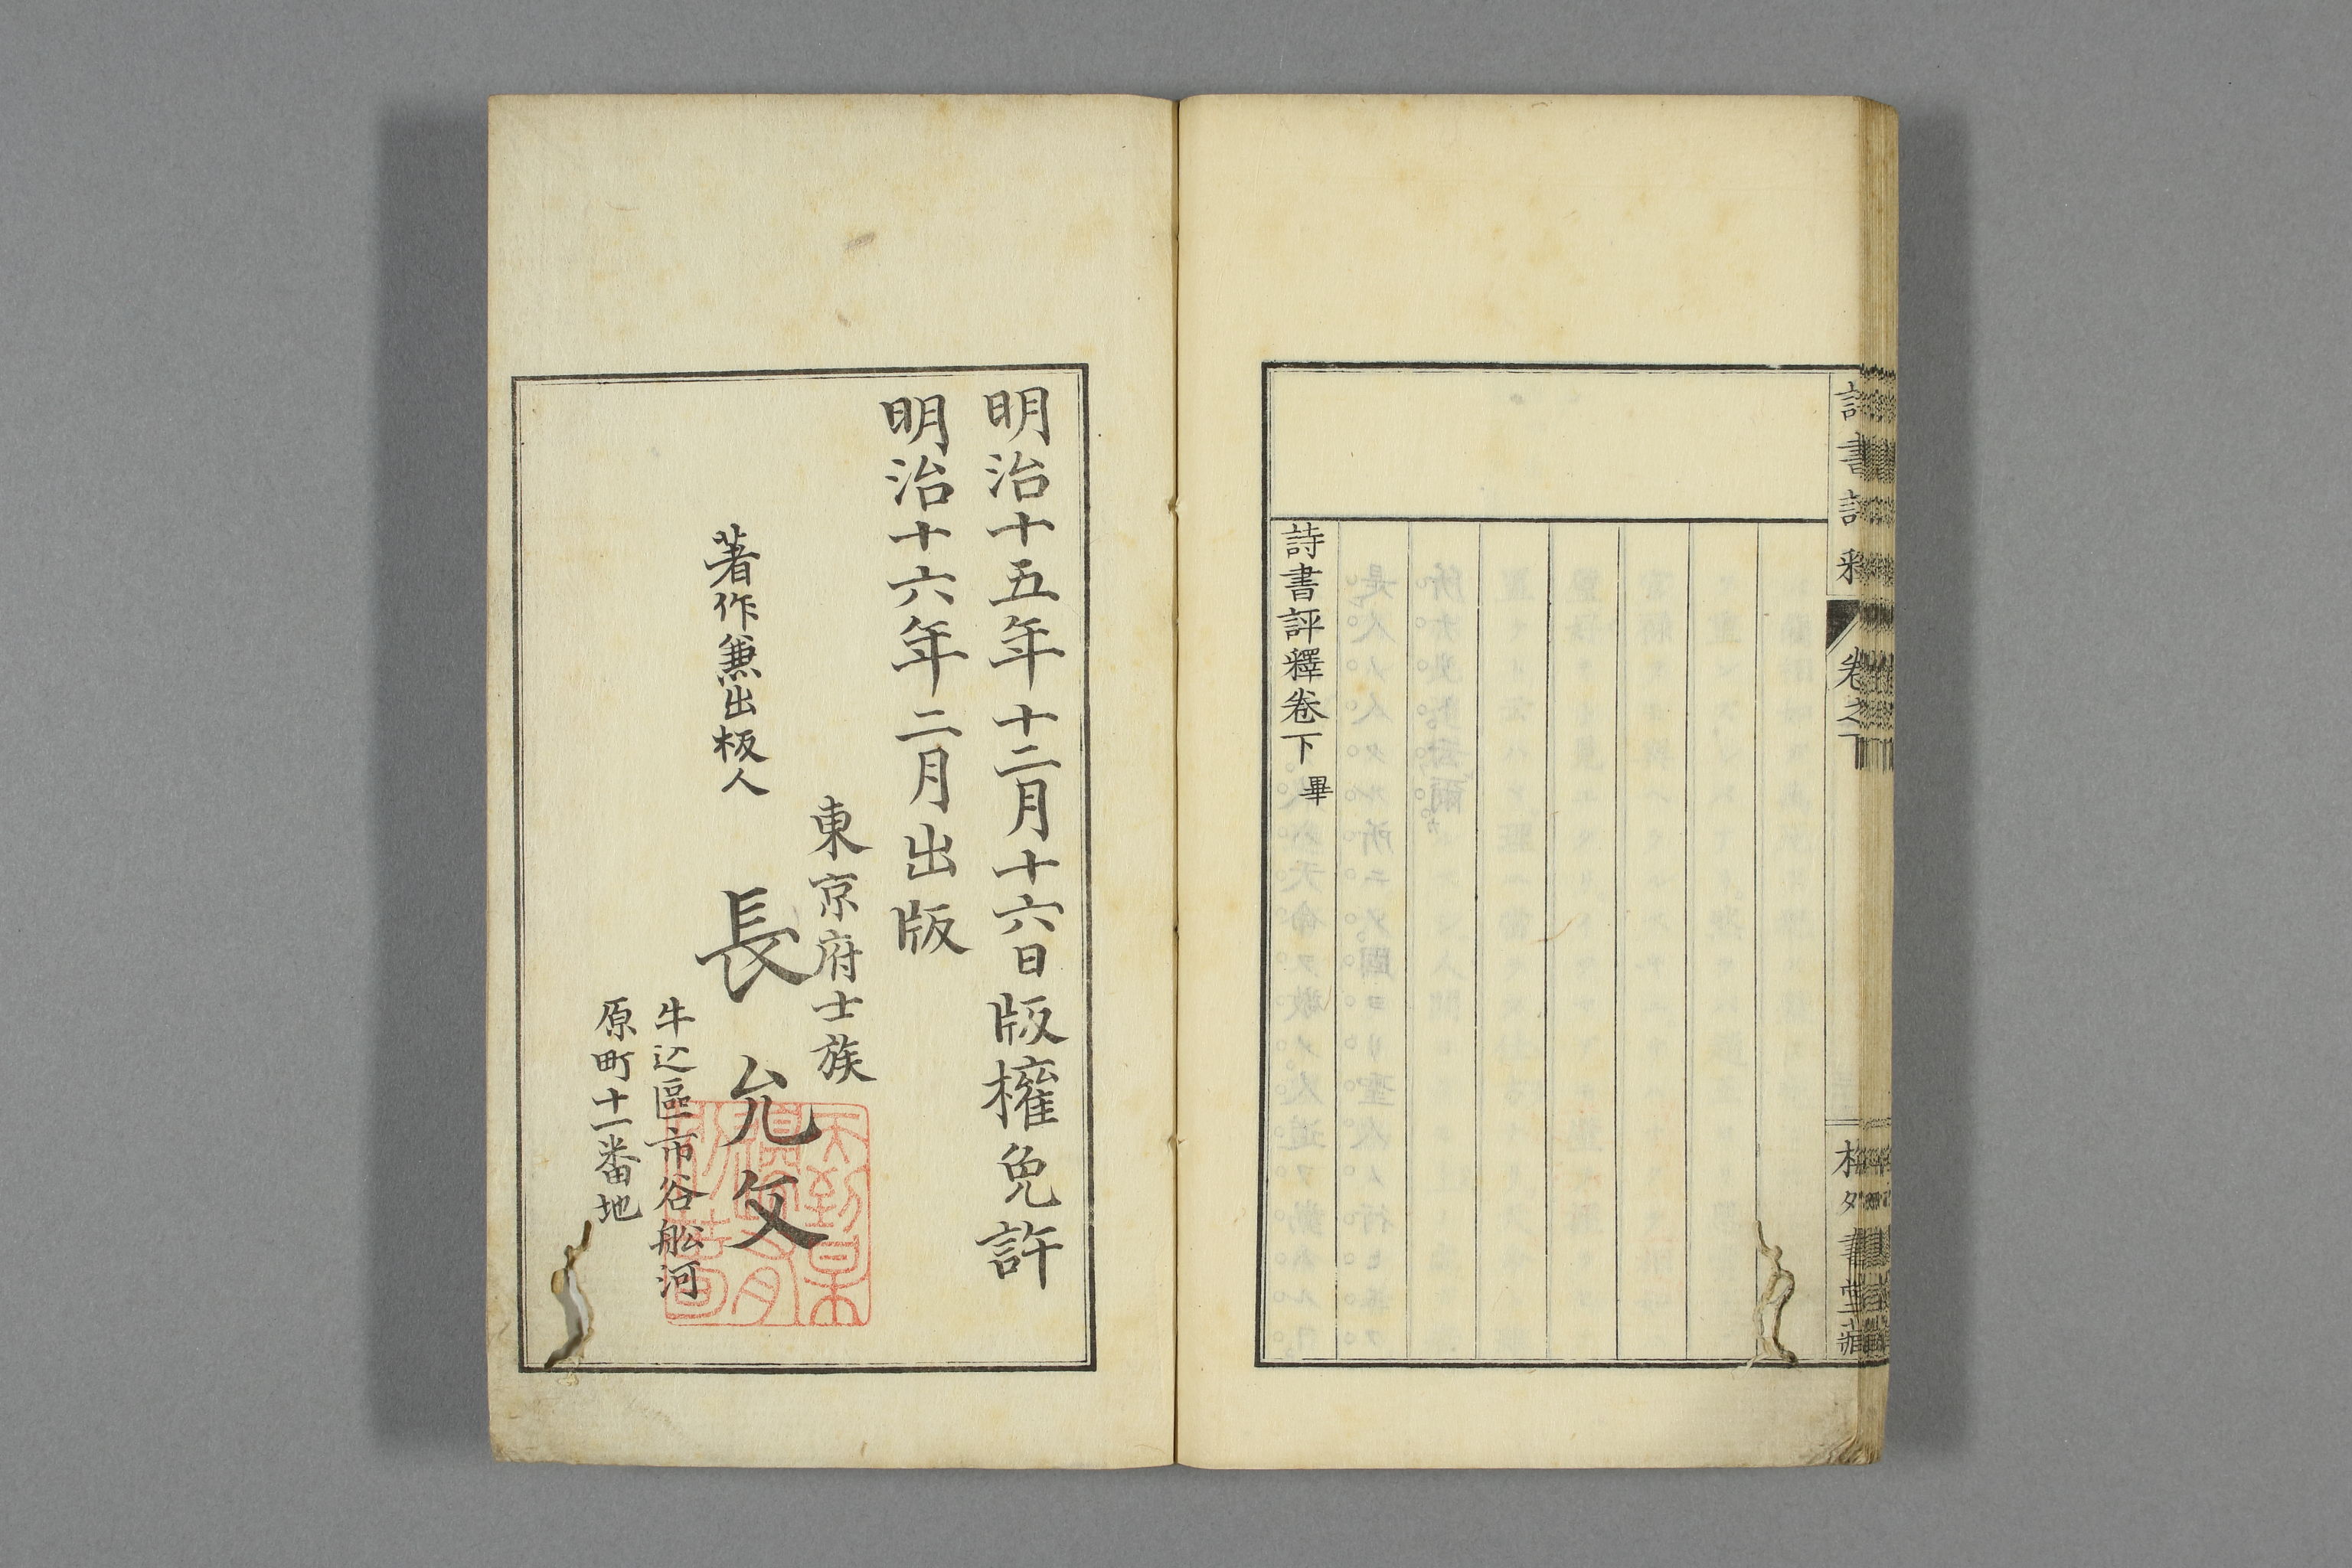 詩書評釋
卷之下
詩書評釋卷下 畢
明治十五年十二月十六日版權免許
明治十六年二月出版
東京府士族
著作兼出板人 長 允文
牛込區市谷舩河
原町十一番地